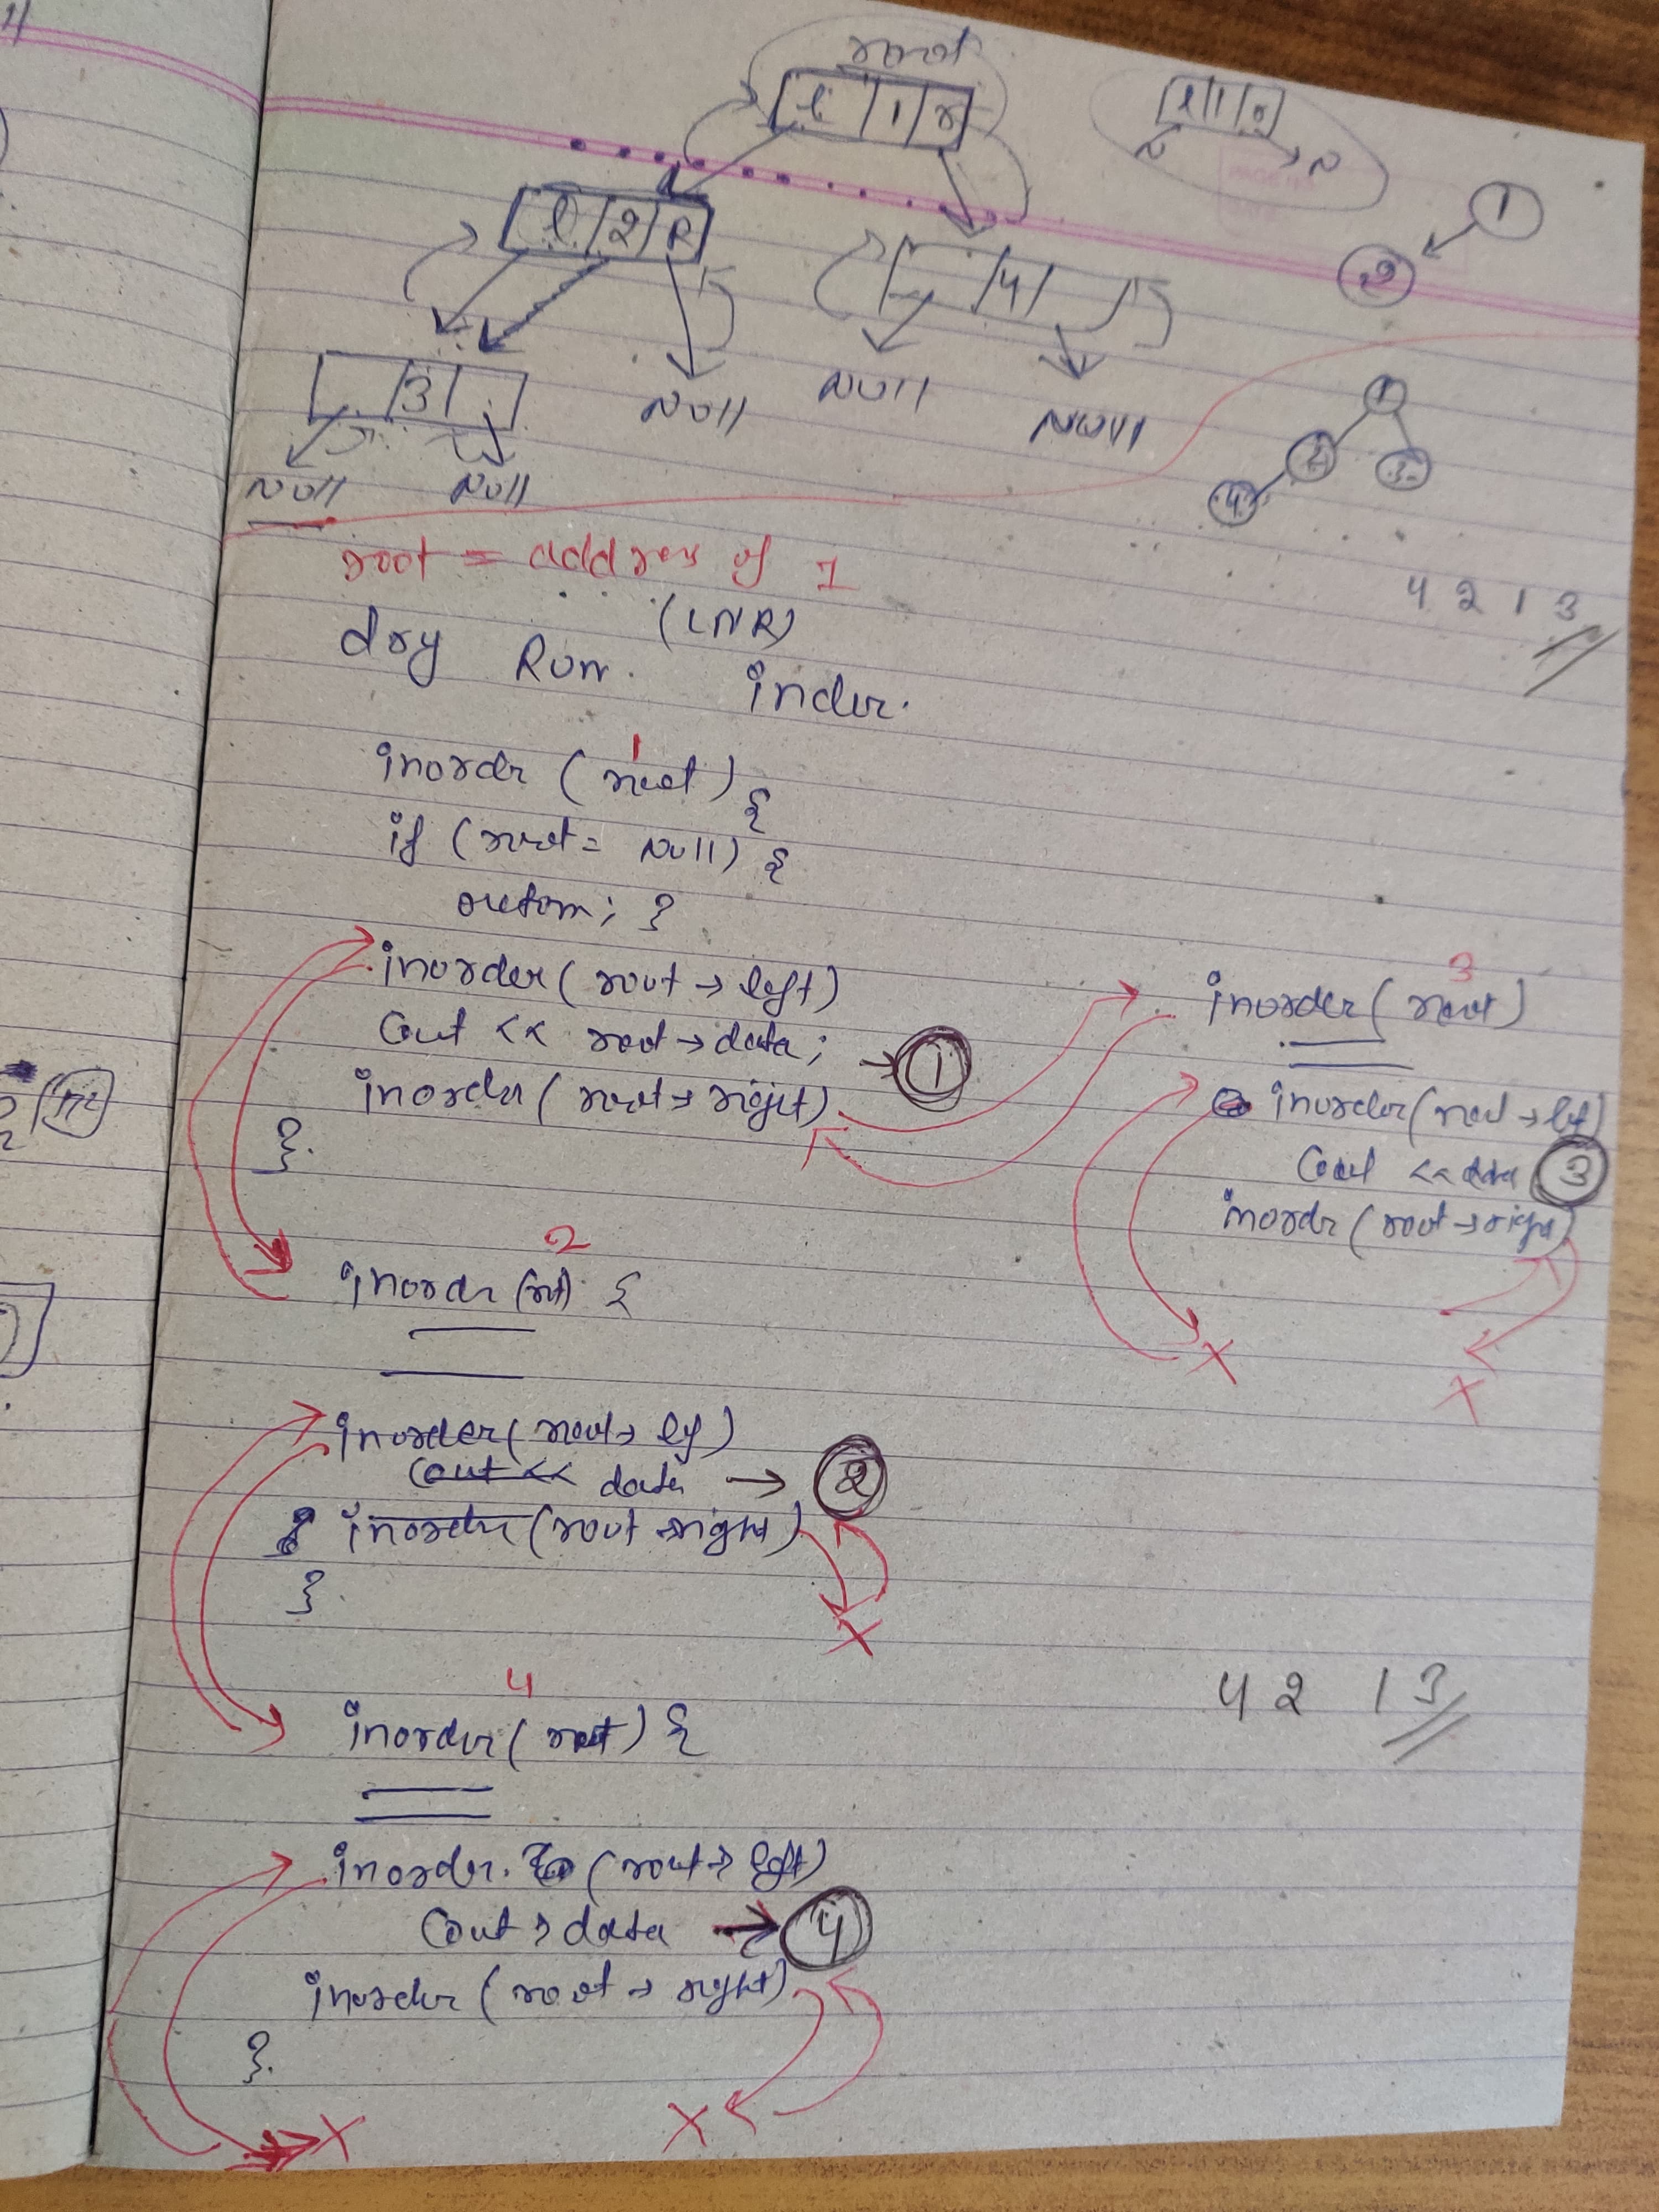 root
l 1 r
l 1 r
N N
l 2 R
4
1
2
3
Null Null Null
Null Null
1
2 3
4
root = address of 1
4 2 1 3
(LNR)
dry Run. inder.
1
inordr (root) {
if (root = Null) {
return; }
inorder(root → left)
Cout << root → data; → 1
inorder(root → right)
}.
3
inorder(root)
inorder(root → lf)
Cout << data 3
inordr (root → right)
2
inordr (rt) {
inorder(root → lf)
Cout << data → 2
inordr (root → right)
}.
4
inorder(root) {
4 2 1 3
inorder. (root → left)
Cout > data → 4
inorder (root → right)
}.